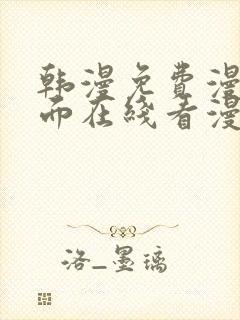 韩漫免费漫
而在线看漫
洛_墨璃